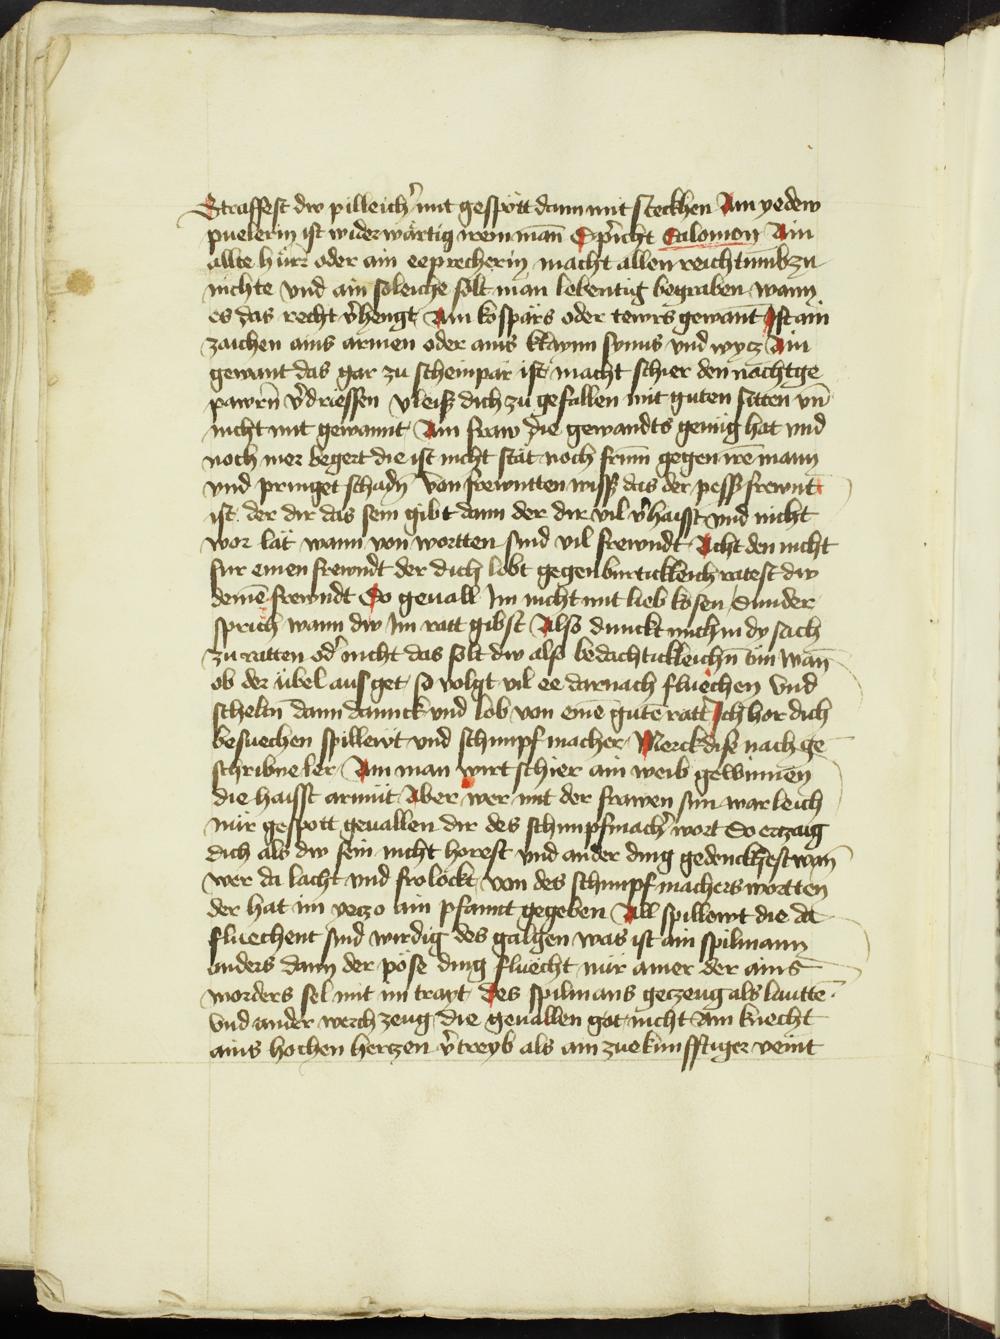 Straffest dw pilleich̾ mit gespött dann mit steckhen Ain yedew
puelerin ist widerwärtig irem man̄ Spricht Salomon Ain
allte hürr oder ain eeprecherin macht allen reichtumb zu
nichte vnd ain soleiche solt man lebentig begraben wann
es das recht v̾hengt Ain kospärs oder tewrs gewant Ist ain
zaichen ains armen oder ains klaynn synns vnd wycz Ain
gewant das gar zu scheinpär ist macht schier den nachtge
pawrn̄ v̾driessen vleiss dich zu gefallen mit guten sitten vn̄
nicht mit gewannt Ain fraw die gewandts genüg hat vnd
noch mer begert die ist nicht stät noch frum gegen irē mann
vnd pringet schadn̄ Von frewntten wiss das der pesst frewnt
ist der dir das sein gibt dann der dir vil v̾haisst vnd nicht
wor lät wann von wortten sind vil frewndt Acht den nicht
fur einen frewndt der dich lobt gegenburtickleich ratest dw
deinē frewndt So geuall Im nicht mit lieb kosen Sunder
sprich wann dw Im ratt gibst Also dunckt mich in dy sach
zu ratten od̾ nicht das solt dw also bedachtickleichn̄ tün wan̄
ob der übel aus get so volgt vil ee darnach fluechen vnd
scheltn̄ dann dannck vnd lob von einē gutē ratt Ich hor dich
besuechen spillewt vnd schimpfmacher Merck dise nach ge
schribne ler Ain man wirt schier ain weib gewinnen
die haisst armüt Aber wer mit der frawen sün warleich
nür gespott geuallen dir des schimpfmach̾ wort So ertzaig
dich als dw sein nicht horest vnd ander ding gedenckhest wan̄
wer da lacht vnd frolöckt von des schimpfmachers wortten
der hat im yeczo ain pfannt gegeben All spillewt die da
fluechent sind wirdig des galgen was ist ain spilmann
anders dann der pöse ding fluecht nür ainer der ains
morders sel mit im trayt Des spilmans geczeug als lauttē
vnd ander werchzeug die geuallen got nicht Ain knecht
ains hochen hertzen v̾treyb als ain zuekunfftiger veint